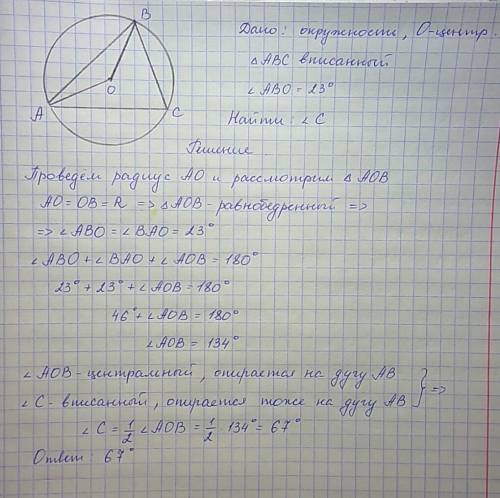 B
O
A
C
Дано: окружность, О-центр.
△ABC вписанный
∠ABO = 23°
Найти: ∠C
Решение
Проведем радиус AO и рассмотрим △AOB
AO = OB = R => △AOB - равнобедренный =>
=> ∠ABO = ∠BAO = 23°
∠ABO + ∠BAO + ∠AOB = 180°
23° + 23° + ∠AOB = 180°
46° + ∠AOB = 180°
∠AOB = 134°
∠AOB - центральный, опирается на дугу AB
∠C - вписанный, опирается тоже на дугу AB } =>
∠C = 1/2 ∠AOB = 1/2 · 134° = 67°
Ответ: 67°